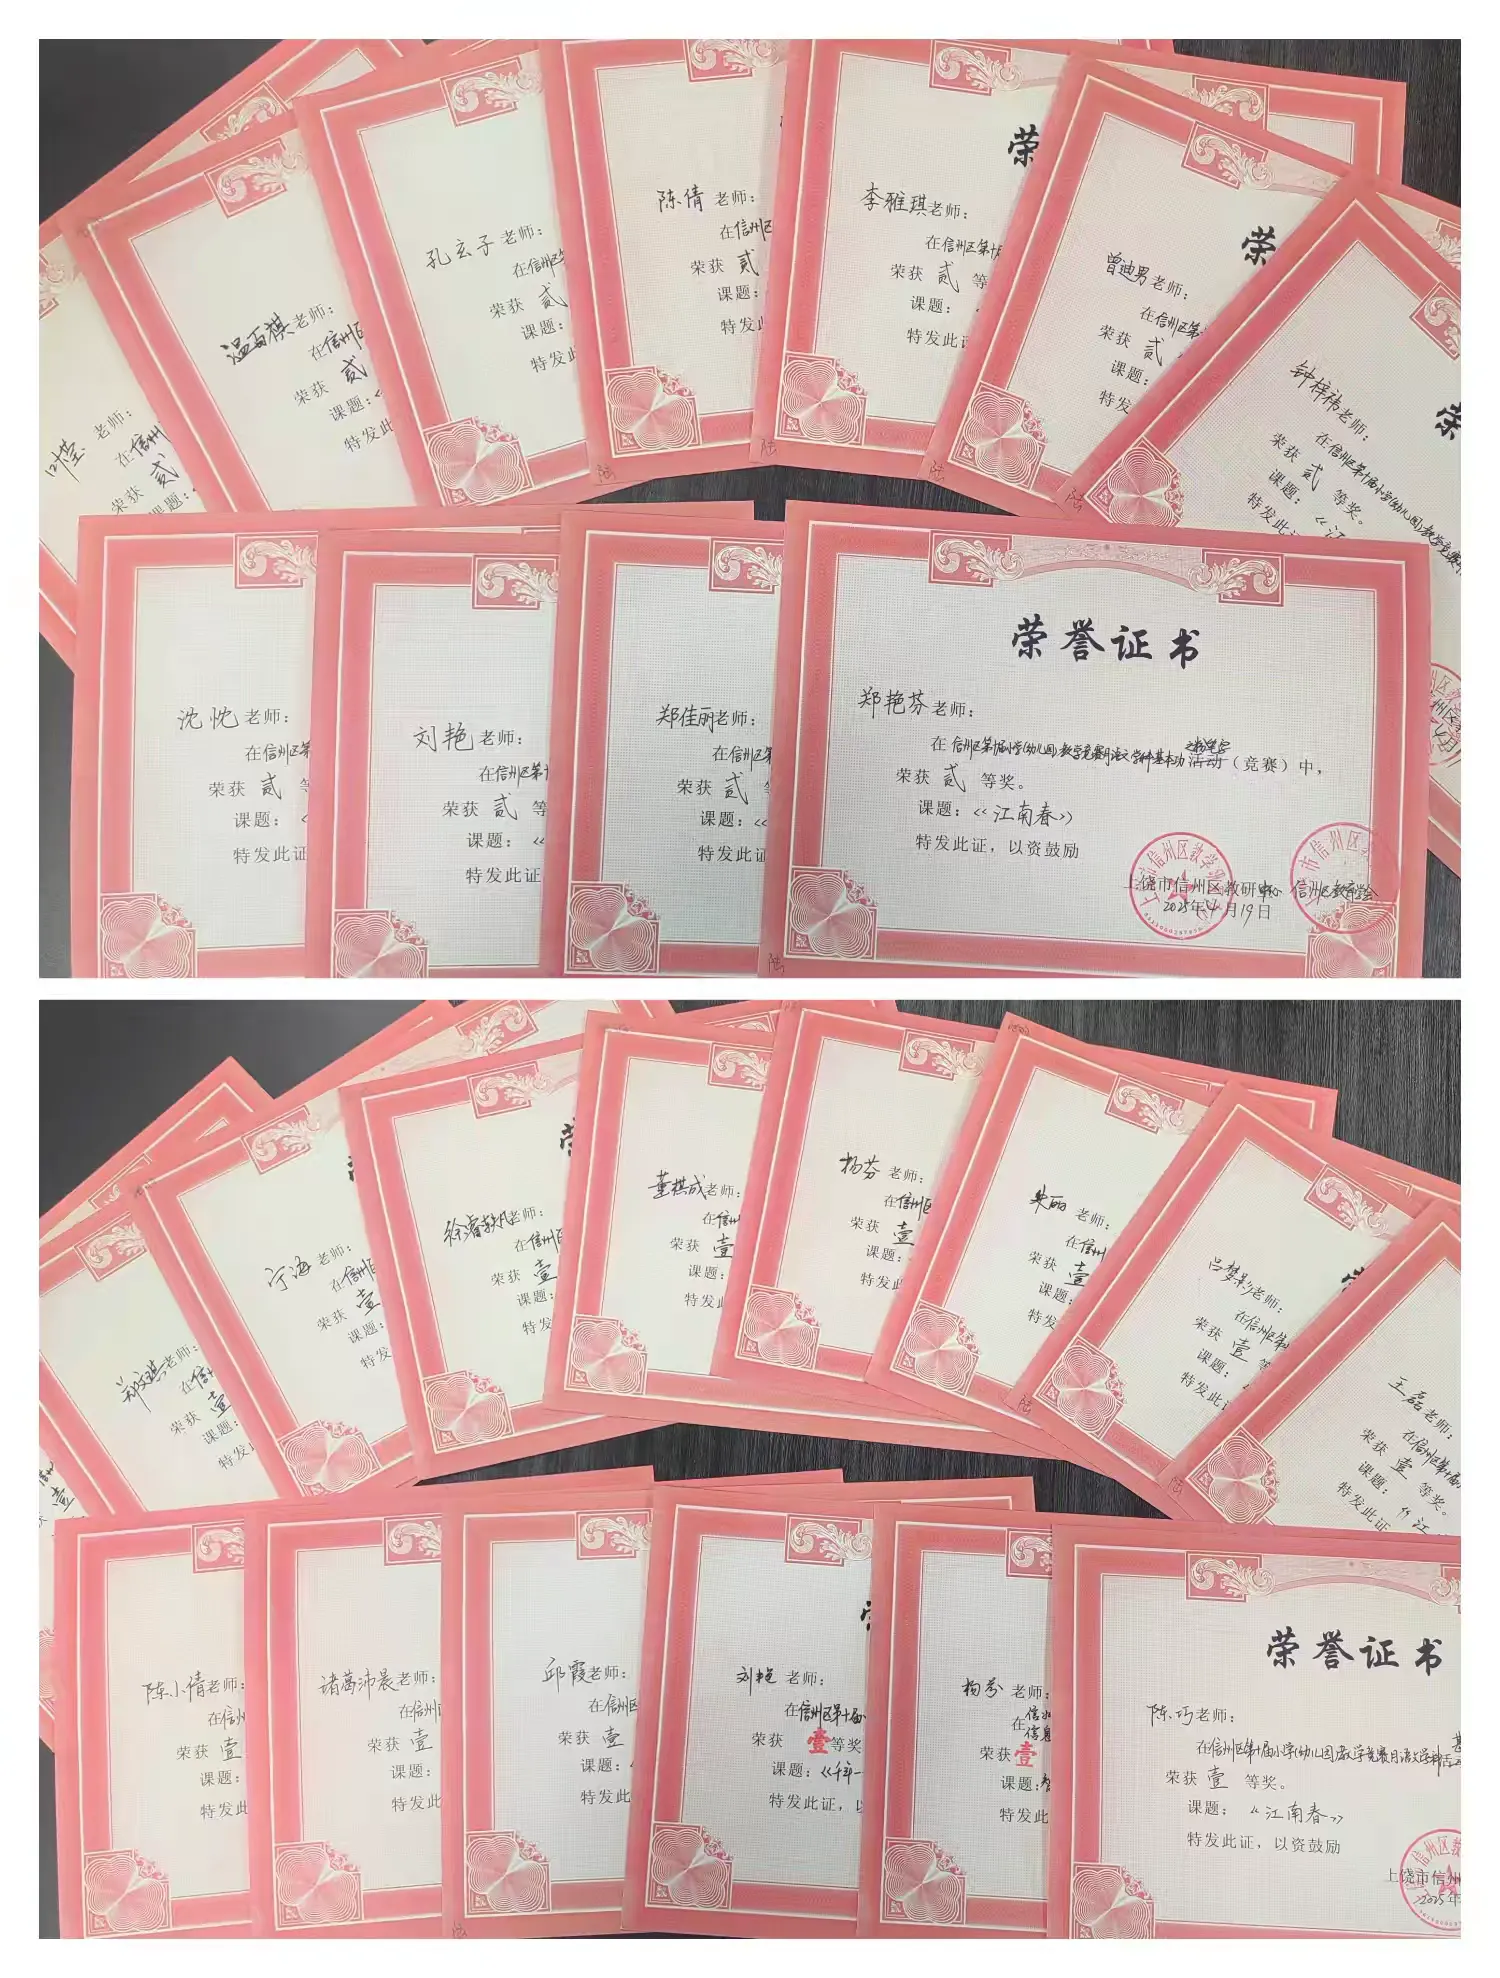 叶莹 老师：
在信州
荣获 贰
课题：
温百祺老师：
在信州区
荣获 贰
课题：《
特发此
孔玄子老师：
在信州区第
荣获 贰
课题：
特发此
陈倩 老师：
在信州区
荣获 贰
课题：
特发此
荣
李雅琪老师：
在信州区第十
荣获 贰 等
课题：
特发此证
荣
曾迪男老师：
在信州区第
荣获 贰
课题：
特发此
荣
钟梓祎老师：
在信州区第十届小学(幼儿园)教学竞赛
荣获 贰 等奖。
课题：《江
特发此证
沈忱老师：
在信州区第
荣获 贰
课题：《
特发此证
刘艳老师：
在信州区第十
荣获 贰 等
课题：《
特发此证
郑佳丽老师：
在信州区第
荣获 贰 等
课题：《
特发此证
荣誉证书
郑艳芬老师：
在信州区第十届小学(幼儿园)教学竞赛月语文学科基本功之粉笔字活动（竞赛）中，
荣获 贰 等奖。
课题：《江南春》
特发此证，以资鼓励
上饶市信州区教研中心 信州区教育学会
2025年4月19日
郑文琪老师：
在信
荣获 壹
课题：
特发
宁海老师：
在信州区
荣获 壹
课题：
特发
荣
徐睿轶凡老师：
在信州区
荣获 壹
课题：
特发
董祺成老师：
在信州
荣获 壹
课题：
特发此
杨芬 老师：
在信州区
荣获 壹
课题：
特发此
老师：
在信州
荣获 壹
课题：
特发
吕梦影老师：
在信州区第
荣获 壹 等
课题：
特发此证
王磊老师：
在信州区第十届
荣获 壹 等奖。
课题：《江
特发此证
陈小倩老师：
在信州
荣获 壹
课题：
特发此
诸葛沛晨老师：
在信州
荣获 壹
课题：
特发此
邱霞老师：
在信州区
荣获 壹
课题：
特发此
刘艳 老师：
在信州区第十届
荣获 壹等奖
课题：《千年一
特发此证，以
杨芬 老师：
在
荣获 壹
课题：
特发此
荣誉证书
陈巧老师：
在信州区第十届小学(幼儿园)教学竞赛月语文学科
荣获 壹 等奖。
课题：《江南春》
特发此证，以资鼓励
上饶市信州
2025年